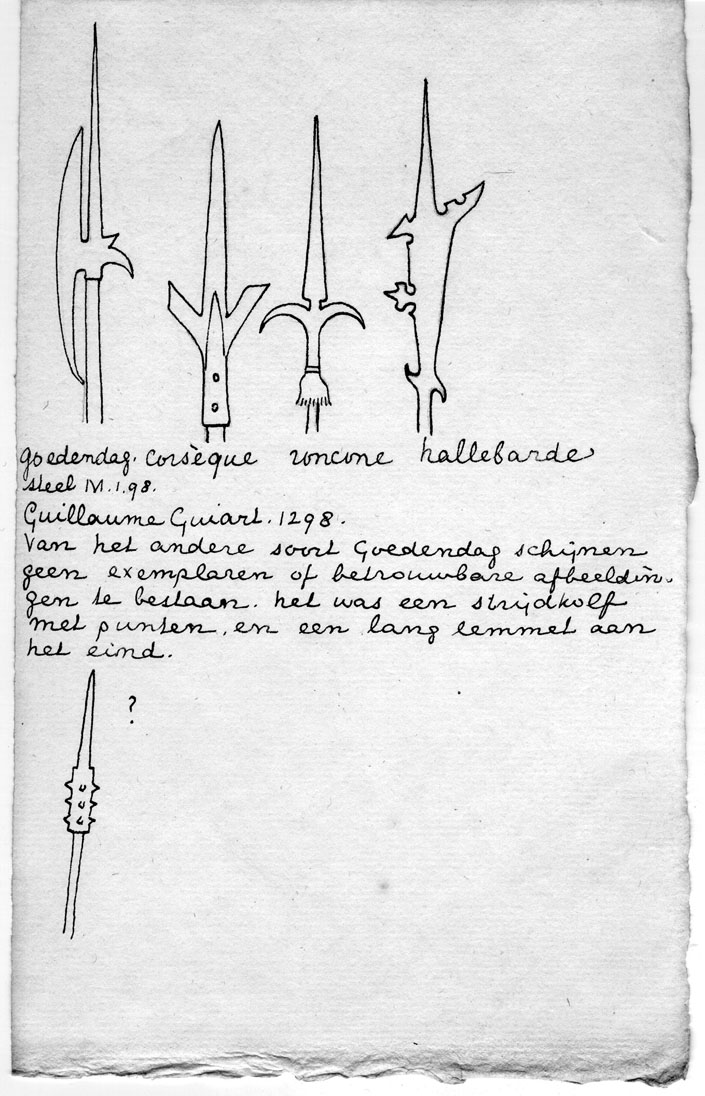 goedendag. corsèque roncone hallebarde
steel M.1.98.
Guillaume Guiart. 1298.
Van het andere soort Goedendag schijnen
geen exemplaren of betrouwbare afbeeldin-
gen te bestaan. het was een strijdkolf
met punten, en een lang lemmet aan
het eind.
?